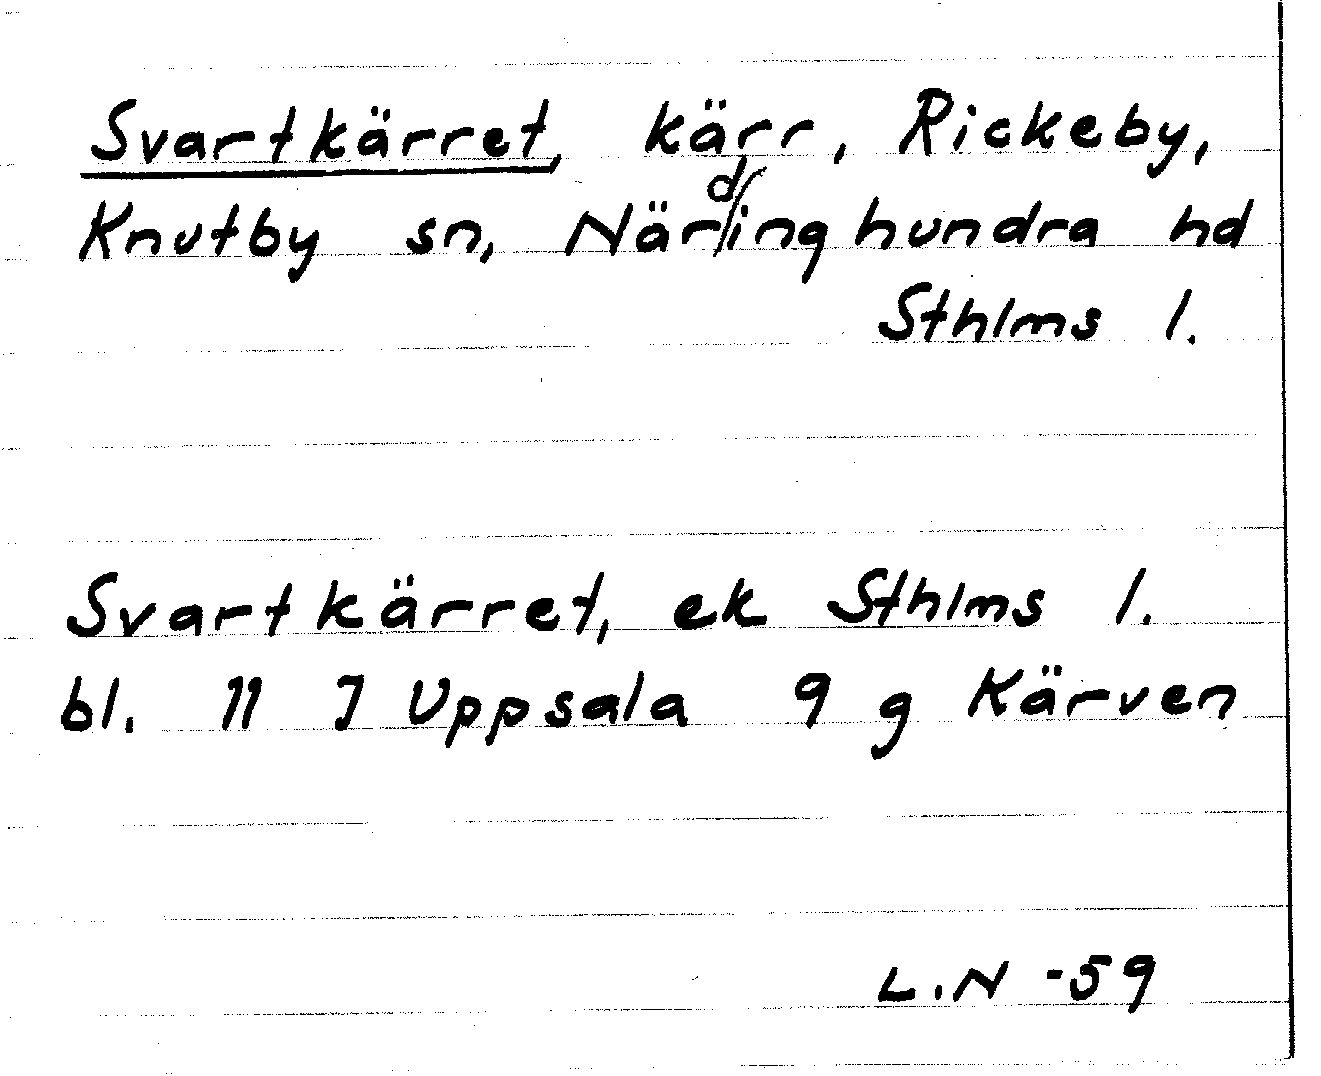 Svartkärret, kärr, Rickeby,
Knutby sn, Närdinghundra hd
Sthlms l.
Svartkärret, ek Sthlms l.
bl. 11 J Uppsala 9 g Kärven
L.N -59